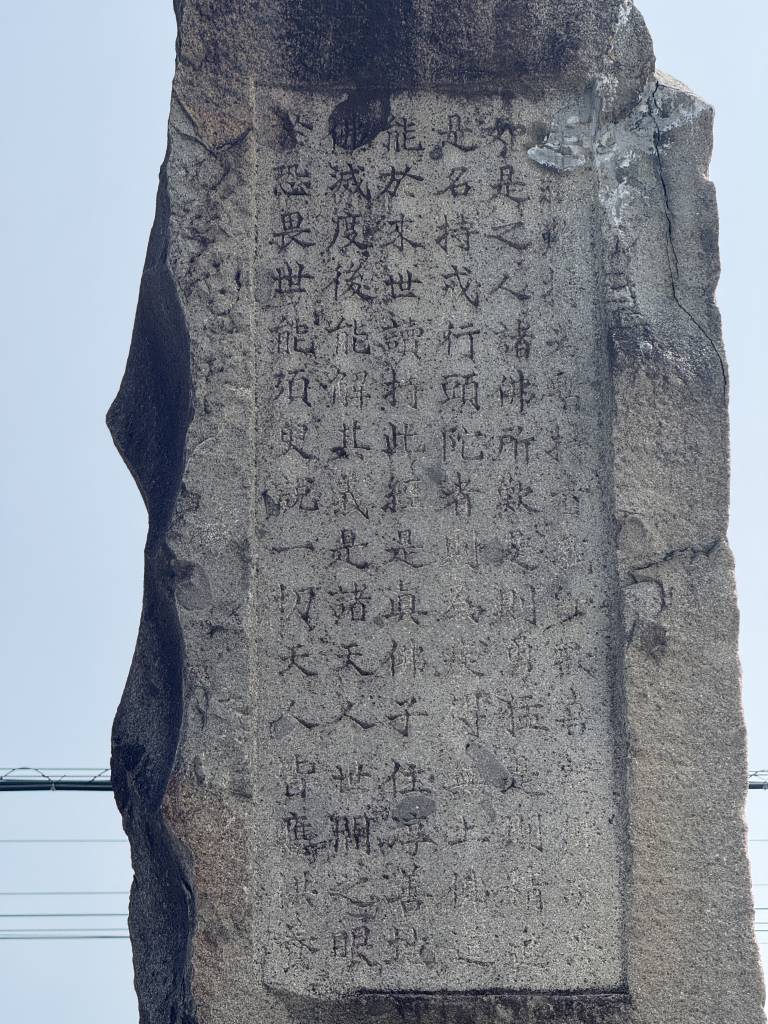 此經難持若暫持者我則歡喜諸佛亦然
如是之人諸佛所歎是則勇猛是則精進
是名持戒行頭陀者則為疾得無上佛道
能於來世讀持此經是真佛子住淳善地
佛滅度後能解其義是諸天人世間之眼
於恐畏世能須臾説一切天人皆應供養